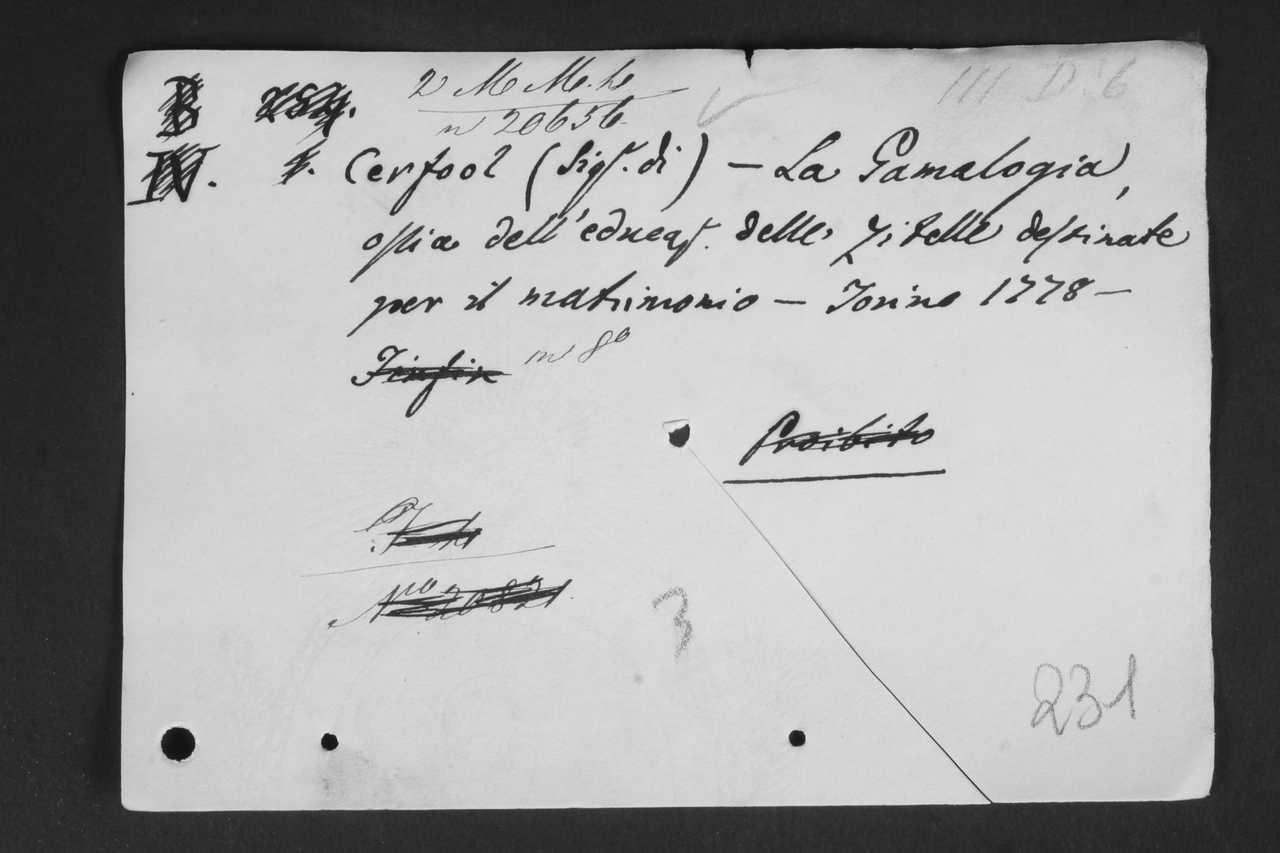 B 2 M M. h III D. 6
n 20656
IV. Cerfool (Sigr. di) — La Gamalogia,
ossia dell'educaz. delle Zitelle destinate
per il matrimonio — Torino 1778 —
in 8º
Proibito
Nro 2082
3
231